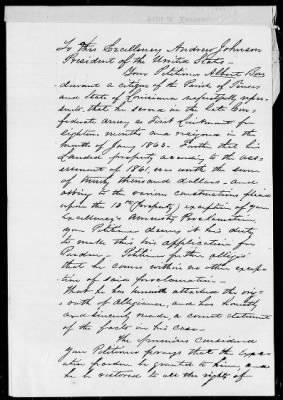 To His Excellency Andrew Johnson
President of the United States—
Your Petitioner Albert Bon
durant a citizen of the Parish of Tensas
and State of Louisiana respectfully repre-
sents, that he served in the late Con-
federate Army as First Lieutenant for
eighteen months and resigned in the
month of Jany 1863. Further that his
Landed property according to the ass
essment of 1861, was worth the sum
of thousand dollars— and
owing to the various constructions placed
upon the 13th (Property) exception of your
Excellency's Amnesty Proclamation
your Petitioner deems it his duty
to make this his application for
Pardon. Petitioner further alleges
that he comes within no other excep-
tion of said Proclamation—
That he has herewith attached the orig-
oath of allegiance, and has honestly
and sincerely made a correct statement
of the facts in his case—
The premises considered
your Petitioner prays that the Exec-
utive pardon be granted to him, and
he be restored to all the rights of